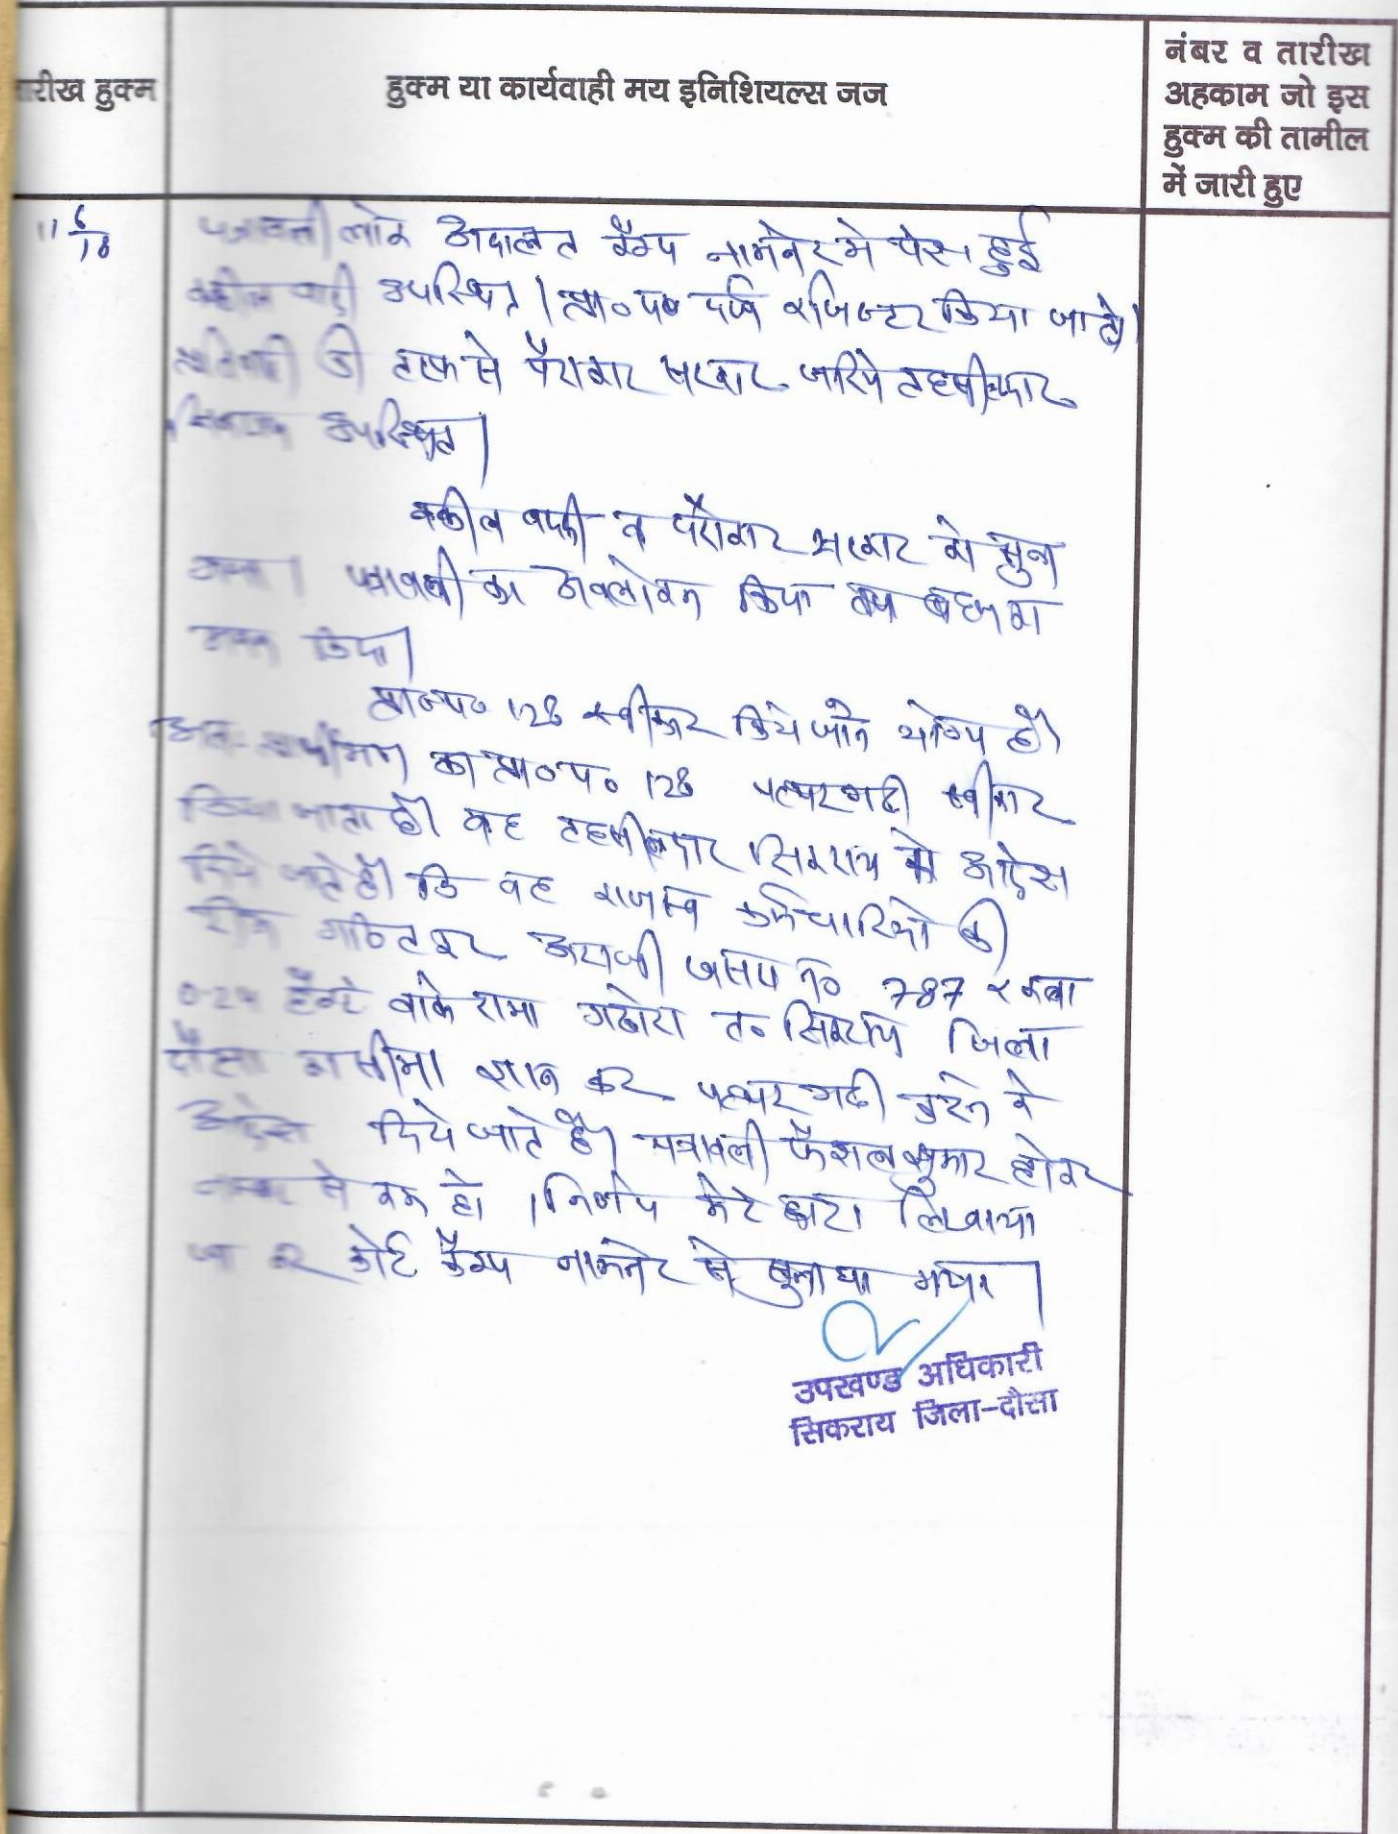 तारीख हुक्म
हुक्म या कार्यवाही मय इनिशियल्स जज
नंबर व तारीख
अहकाम जो इस
हुक्म की तामील
में जारी हुए
11/6/18
पत्रावली लोक अदालत कैम्प नामनेर मे पेश हुई
वकील वादी उपस्थित। प्रा०प० दर्ज रजिस्टर किया जावे।
प्रतिवादी की तरफ से पैरोकार सरकार जरिये तहसीलदार
सिकराय उपस्थित।
वकील वादी व पैरोकार सरकार को सुना
गया। पत्रावली का अवलोकन किया तथा
किया।
प्रा०प० 128 स्वीकार किये जाने योग्य है।
अतः का प्रा०प० 128 पत्थरगढी स्वीकार
किया जाता है। तहसीलदार सिकराय को आदेश
दिये जाते है। कि वह राजस्व कर्मचारियो की
टीम गठित कर आराजी खसरा नं० 787 रकबा
हैक्टे वाके ग्राम गढोरा त० सिकराय जिला
दौसा का सीमा ज्ञान कर पत्थरगढी करने के
आदेश दिये जाते है। पत्रावली फैसल सुमार होकर
नम्बर से कम हो। निर्णय मेरे द्वारा लिखाया
जा कर कोर्ट कैम्प नामनेर मे सुनाया गया।
उपखण्ड अधिकारी
सिकराय जिला-दौसा